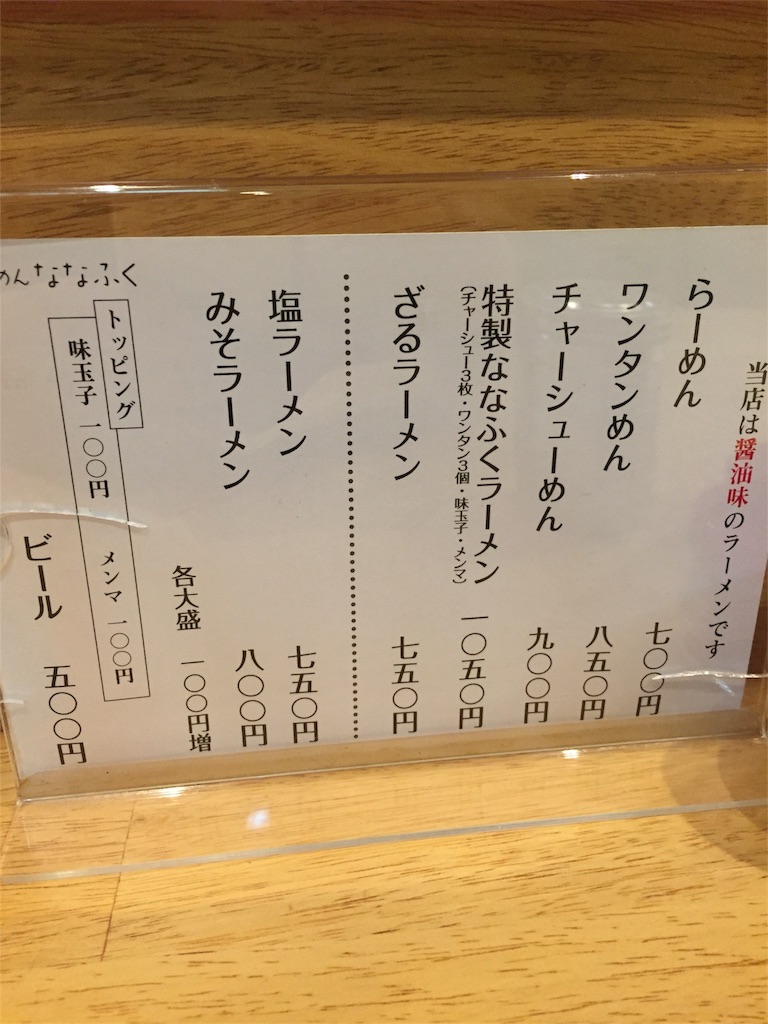 当店は醤油味のラーメンです
らーめん 七〇〇円
ワンタンめん 八五〇円
チャーシューめん 九〇〇円
特製ななふくラーメン 一〇五〇円
(チャーシュー3枚・ワンタン3個・味玉子・メンマ)
ざるラーメン 七五〇円
塩ラーメン 七五〇円
みそラーメン 八〇〇円
各大盛 一〇〇円増
トッピング
メンマ 一〇〇円
味玉子 一〇〇円
ビール 五〇〇円
めんななふく